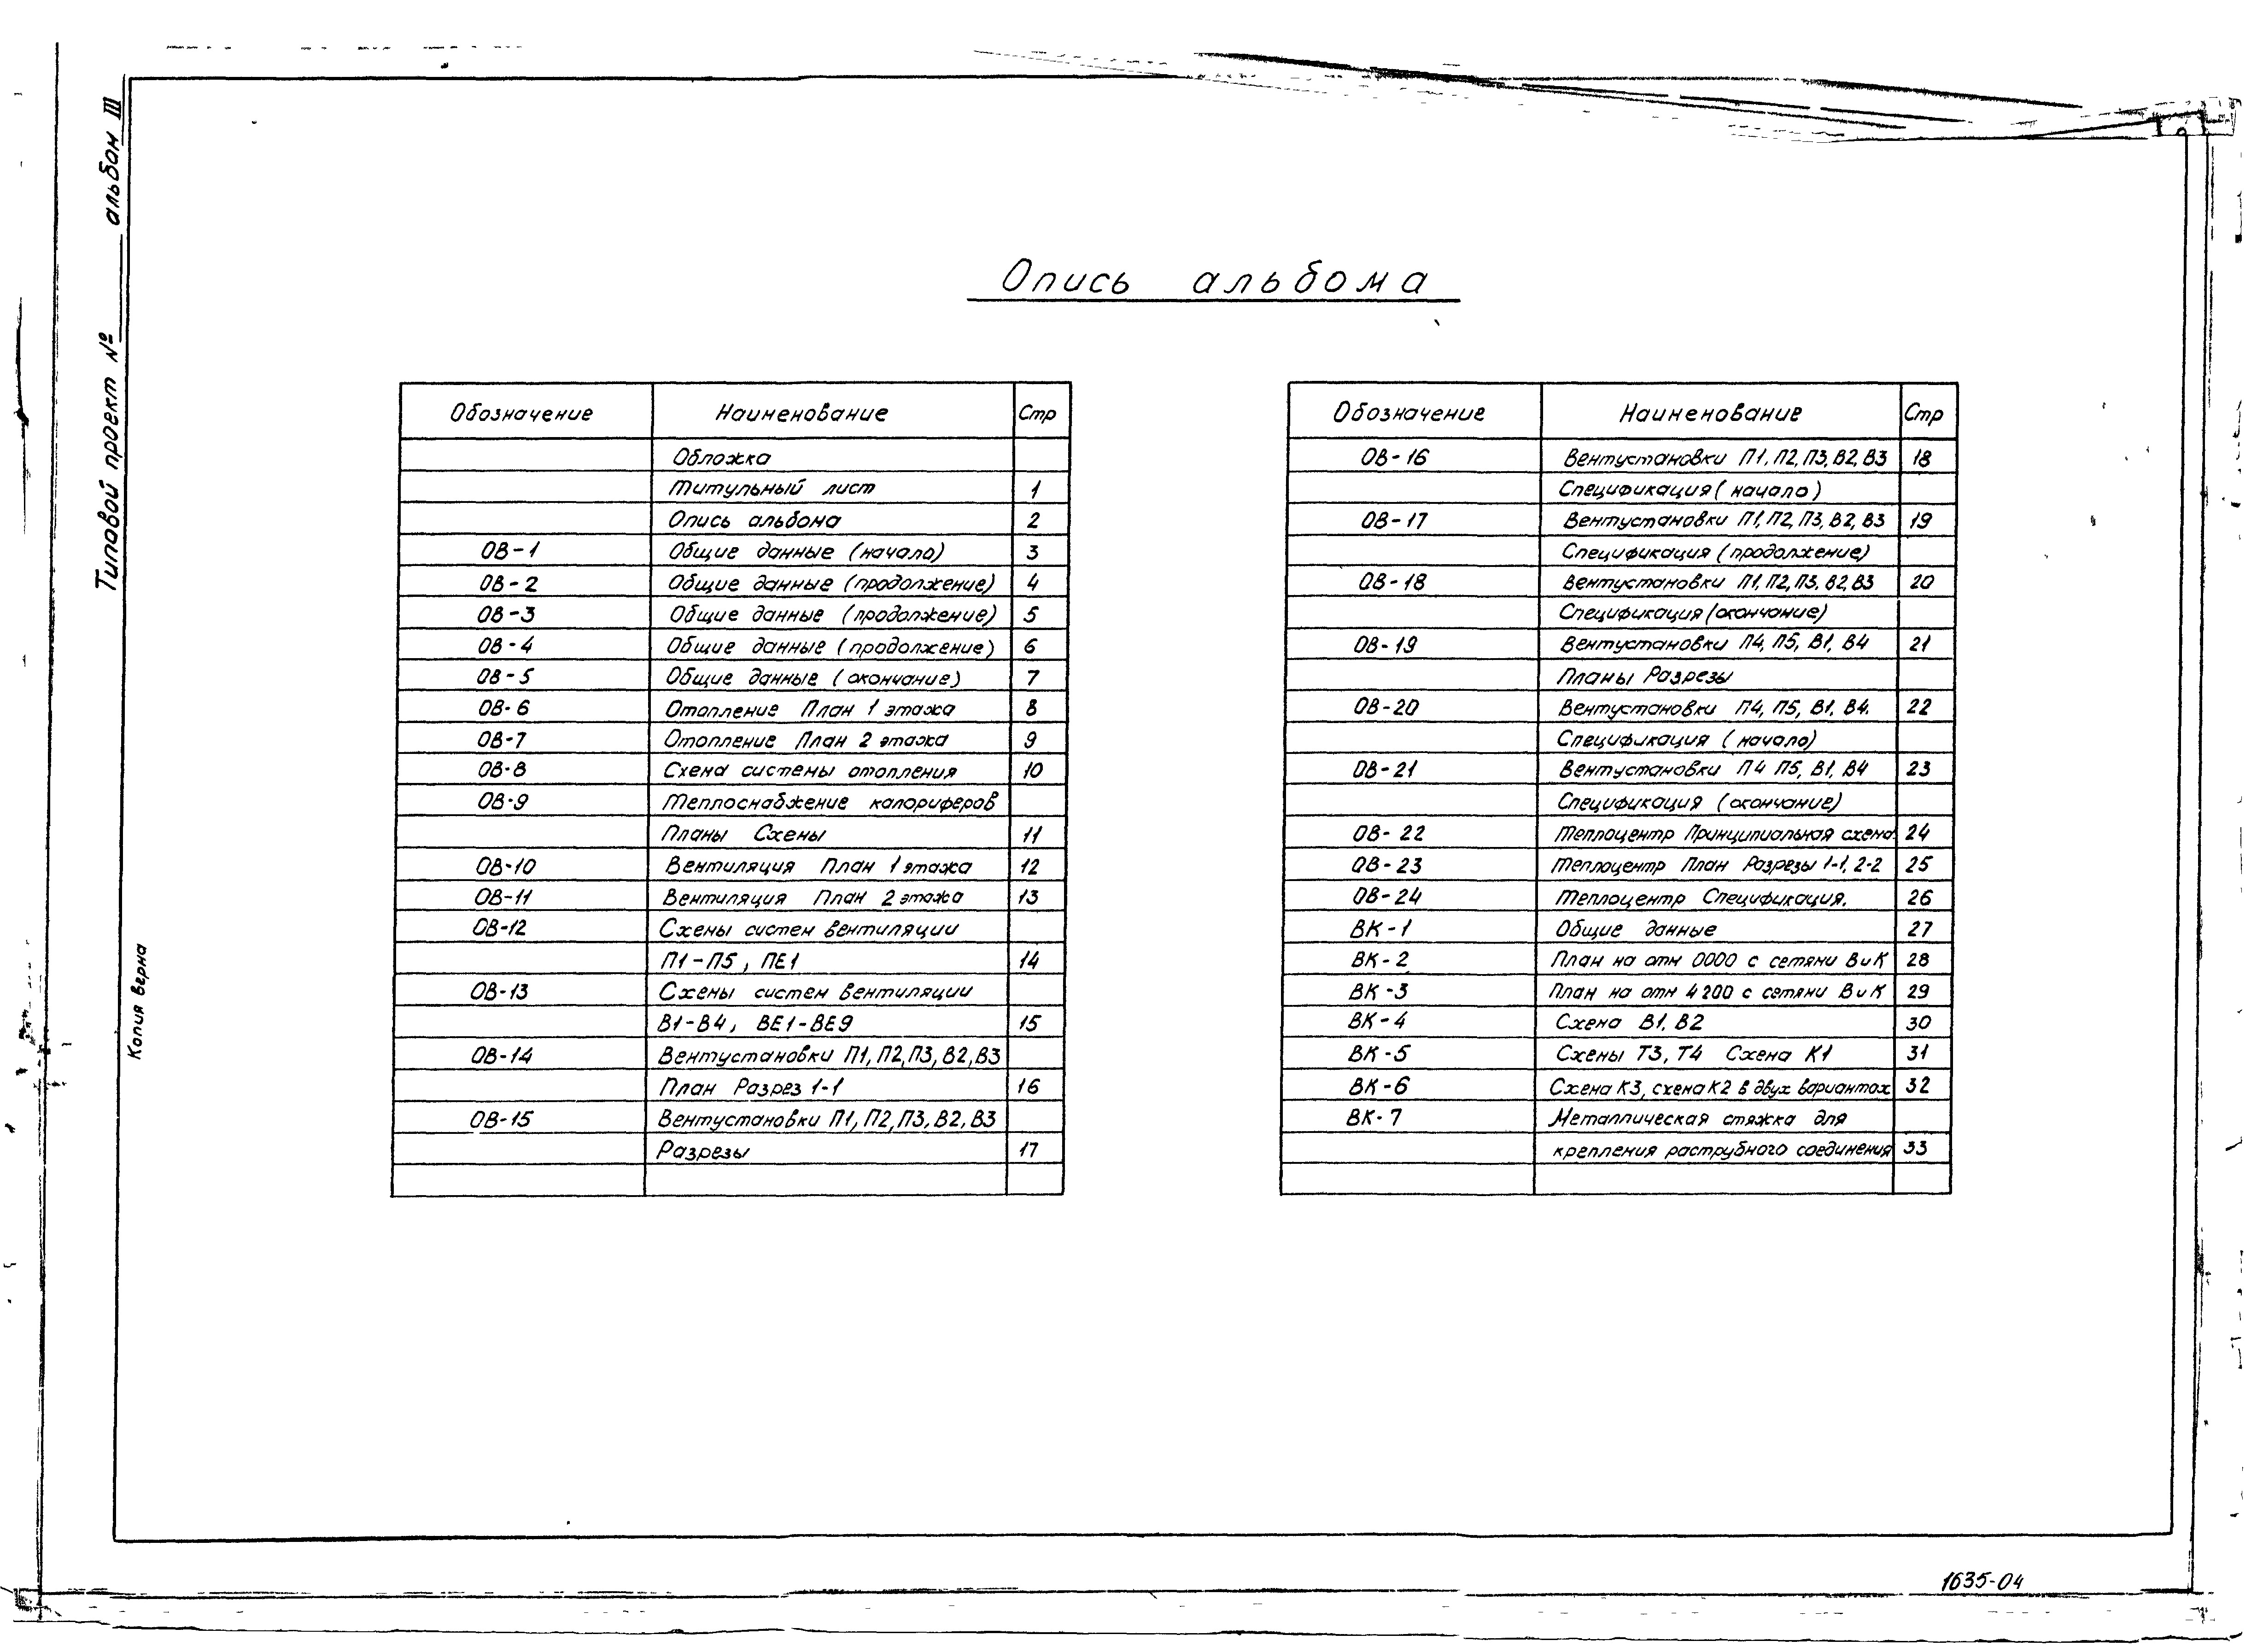 Типовой проект № альбом III
Копия верна
Опись альбома
Обозначение Наименование Стр
Обложка
Титульный лист 1
Опись альбома 2
ОВ-1 Общие данные (начало) 3
ОВ-2 Общие данные (продолжение) 4
ОВ-3 Общие данные (продолжение) 5
ОВ-4 Общие данные (продолжение) 6
ОВ-5 Общие данные (окончание) 7
ОВ-6 Отопление План 1 этажа 8
ОВ-7 Отопление План 2 этажа 9
ОВ-8 Схема системы отопления 10
ОВ-9 Теплоснабжение калориферов
Планы Схемы 11
ОВ-10 Вентиляция План 1 этажа 12
ОВ-11 Вентиляция План 2 этажа 13
ОВ-12 Схемы систем вентиляции
П1-П5, ПЕ1 14
ОВ-13 Схемы систем вентиляции
В1-В4, ВЕ1-ВЕ9 15
ОВ-14 Вентустановки П1, П2, П3, В2, В3
План Разрез 1-1 16
ОВ-15 Вентустановки П1, П2, П3, В2, В3
Разрезы 17
Обозначение Наименование Стр
ОВ-16 Вентустановки П1, П2, П3, В2, В3 18
Спецификация (начало)
ОВ-17 Вентустановки П1, П2, П3, В2, В3 19
Спецификация (продолжение)
ОВ-18 Вентустановки П1, П2, П3, В2, В3 20
Спецификация (окончание)
ОВ-19 Вентустановки П4, П5, В1, В4 21
Планы Разрезы
ОВ-20 Вентустановки П4, П5, В1, В4. 22
Спецификация (начало)
ОВ-21 Вентустановки П4 П5, В1, В4 23
Спецификация (окончание)
ОВ-22 Теплоцентр Принципиальная схема. 24
ОВ-23 Теплоцентр План Разрезы 1-1, 2-2 25
ОВ-24 Теплоцентр Спецификация. 26
ВК-1 Общие данные 27
ВК-2 План на отм 0000 с сетями ВиК 28
ВК-3 План на отм 4200 с сетями ВиК 29
ВК-4 Схема В1, В2 30
ВК-5 Схемы Т3, Т4 Схема К1 31
ВК-6 Схема К3, схема К2 в двух вариантах 32
ВК-7 Металлическая стяжка для
крепления раструбного соединения 33
1635-04